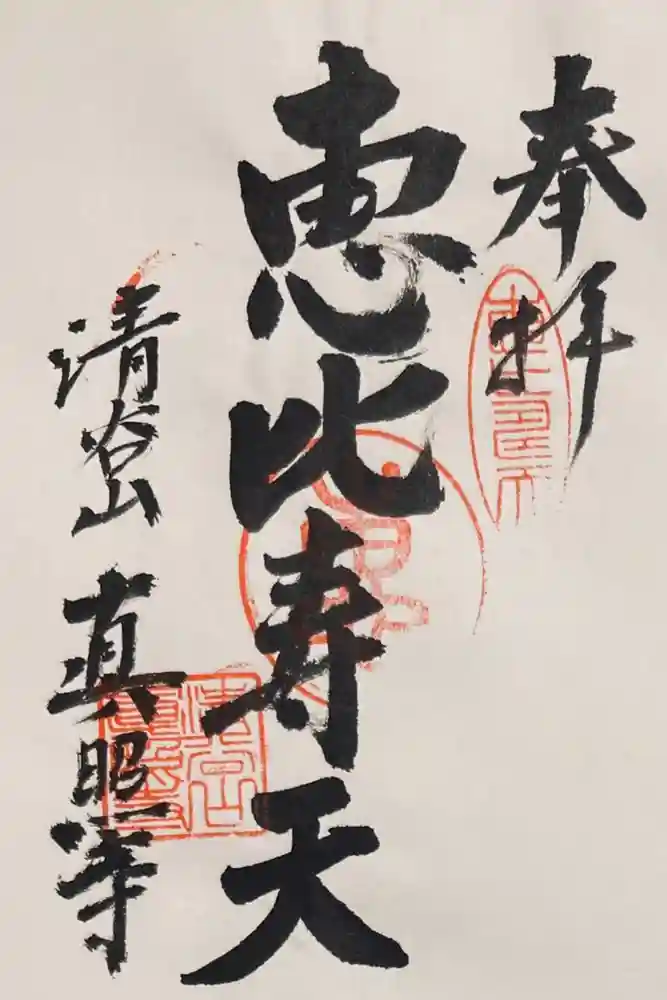 奉拝
恵比寿天
清谷山 真照寺